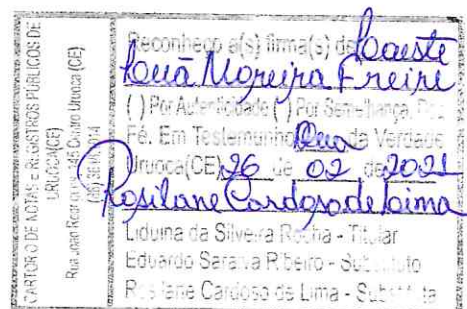 CARTÓRIO DE NOTAS E REGISTROS PÚBLICOS DE
URUOCA(CE)
Centro Uruoca (CE)
Reconheço a(s) firma(s) de
Moreira Freire
( ) Por Autenticidade ( ) Por Semelhança
Fé. Em Testemunho da Verdade
Uruoca(CE) 26 de 02 de 2021
Rosilane Cardoso de Lima
Liduina da Silveira Rocha - Titular
Eduardo Saraiva Ribeiro - Substituto
Rosilane Cardoso de Lima - Substituta